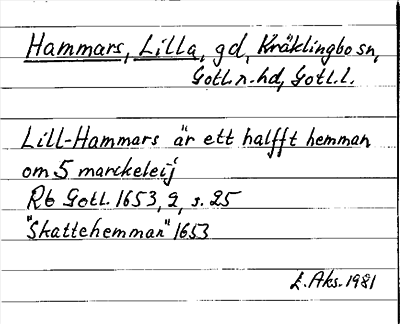 Hammars, Lilla, gd, Kräklingbo sn,
Gotl. n. hd, Gotl. l.
Lill-Hammars är ett halfft hemman
om 5 marckeleij
Rb Gotl. 1653, 2, s. 25
"Skattehemman" 1653
L. Aks. 1981